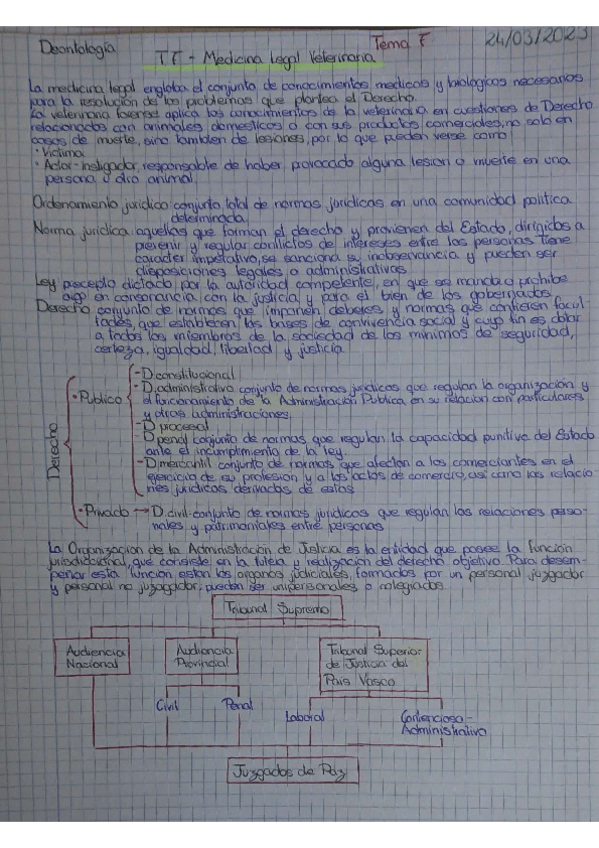 Deontología
Tema 7
24/03/2023
T7 - Medicina Legal Veterinaria
La medicina legal engloba el conjunto de conocimientos medicos y biologicos necesarios
para la resolución de los problemas que plantea el Derecho.
La veterinaria forense aplica los conocimientos de la veterinaria en cuestiones de Derecho
relacionados con animales domesticos o con sus productos comerciales, no solo en
casos de muerte, sino tambien de lesiones, por lo que pueden verse como
• Victima
• Actor-instigador, responsable de haber provocado alguna lesion o muerte en una
persona u otro animal
Ordenamiento juridico conjunto total de normas juridicas en una comunidad politica
determinada
Norma juridica aquellas que forman el derecho y provienen del Estado, dirigidos a
prevenir y regular conflictos de intereses entre las personas Tiene
caracter imperativo, se sanciona su inobservancia y pueden ser
disposiciones legales o administrativas
Ley precepto dictado por la autoridad competente, en que se manda o prohibe
algo en consonancia con la justicia y para el bien de los gobernados
Derecho conjunto de normas que imponen deberes y normas que confieren facul-
tades, que establecen las bases de convivencia social y cuyo fin es dotar
a todos los miembros de la sociedad de los minimos de seguridad,
certeza, igualdad, libertad y justicia
Derecho
• Publico
- D constitucional
- D. administrativo conjunto de normas juridicas que regulan la organización y
el funcionamiento de la Administración Publica, en su relacion con particulares
y otras administraciones
- D procesal
- D penal conjunto de normas que regulan la capacidad punitiva del Estado
ante el incumplimiento de la ley.
- D mercantil conjunto de normas que afectan a los comerciantes en el
ejercicio de su profesion y a los actos de comercio, asi como las relacio-
nes juridicas derivadas de estos
• Privado → D. civil conjunto de normas juridicas que regulan las relaciones perso-
nales y patrimoniales entre personas
La Organizacion de la Administración de Justicia es la entidad que posee la función
jurisdiccional, que consiste en la tutela y realización del derecho objetivo. Para desem-
peñar esta funcion estan los organos judiciales, formados por un personal juzgador
y personal no juzgador, pueden ser unipersonales o colegiados.
Tribunal Supremo
Audiencia
Nacional
Audiencia
Provincial
Tribunal Superior
de Justicia del
Pais Vasco
Civil
Penal
Laboral
Contencioso-
Administrativo
Juzgados de Paz